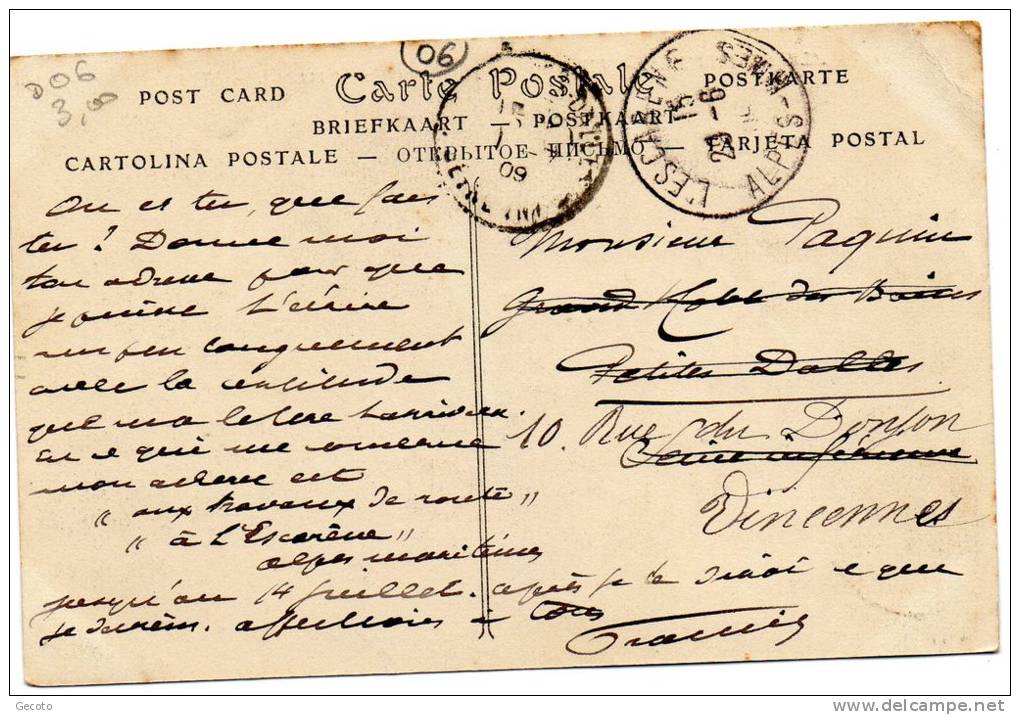 D06
3,00
06
Carte Postale
POST CARD
POSTKARTE
BRIEFKAART — POSTKAART
CARTOLINA POSTALE — ОТКРЫТОЕ ПИСЬМО — TARJETA POSTAL
09
L'ESCARÈNE
ALPES-MMES
15
29-6
Ou es tu, que fais
tu ? Donne moi
ton adresse pour que
je puisse t'écrire
un peu longuement
avec la certitude
que ma lettre t'arrivera.
En ce qui me concerne
mon adresse est
" aux travaux de route "
" à L'Escarène "
alpes maritimes
jusqu'au 14 juillet. après je te dirai ce que
je deviens. affectueux à tous
Monsieur Paquin
Grand Hotel des Bains
Petites Dalles
Seine inférieure
10. Rue du Donjon
Vincennes
Gecoto
delcampe.net